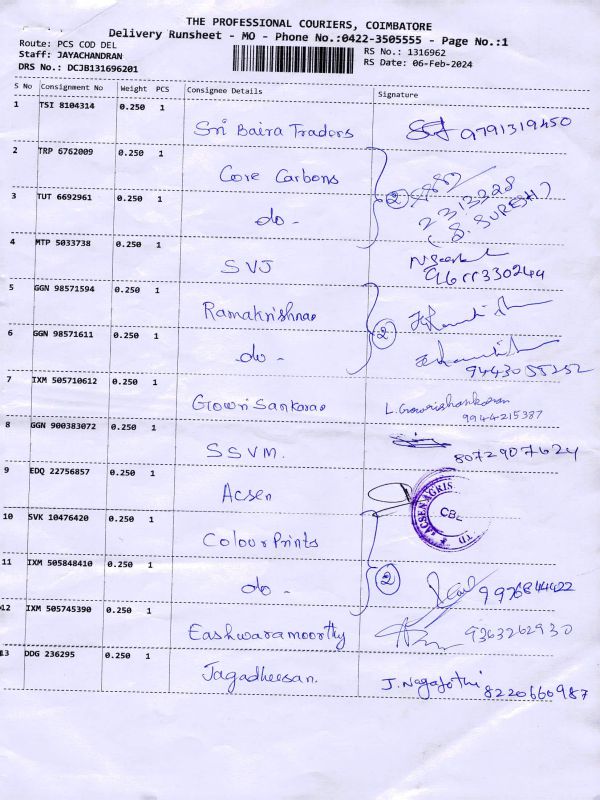 THE PROFESSIONAL COURIERS, COIMBATORE
Delivery Runsheet - MO - Phone No.:0422-3505555 - Page No.:1
Route: PCS COD DEL
Staff: JAYACHANDRAN
DRS No.: DCJB131696201
RS No.: 1316962
RS Date: 06-Feb-2024
S No Consignment No Weight PCS Consignee Details Signature
1 TSI 8104314 0.250 1
Sri Baira Traders 9791319450
2 TRP 6762009 0.250 1
Core Carbons
2
2313328
(S. SURESH)
3 TUT 6692961 0.250 1
do -
4 MTP 5033738 0.250 1
SVJ
5 GGN 98571594 0.250 1
Ramakrishnao
2
6 GGN 98571611 0.250 1
do -
7 IXM 505710612 0.250 1
Gowri Sankarao L. Gowrishankaran
9944215387
8 GGN 900383072 0.250 1
SSVM. 8072907624
9 EDQ 22756857 0.250 1
Acsen
ACSEN AGRIS
CBE
TD
10 SVK 10476420 0.250 1
Colour Prints
2
11 IXM 505848410 0.250 1
do -
12 IXM 505745390 0.250 1
Eashwaramoorthy 9363262930
13 DDG 236295 0.250 1
Jagadheesan. J. Nagajothi 8220660987